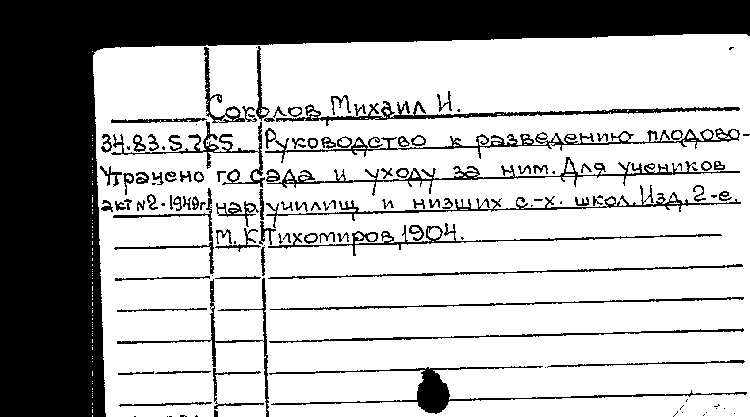 Соколов, Михаил И.
34.83.5.265. Руководство к разведению плодово-
Утрачено го сада и уходу за ним. Для учеников
акт №2-1949г. нар. училищ и низших с.-х. школ. Изд. 2-е.
М., К. Тихомиров, 1904.